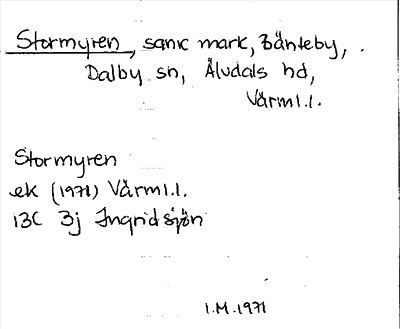 Stormyren, sank mark, Bänteby,
Dalby sn, Älvdals hd,
Värml.l.
Stormyren
ek (1971) Värml.l.
13C 3j Ingridsjön
I.M.1971